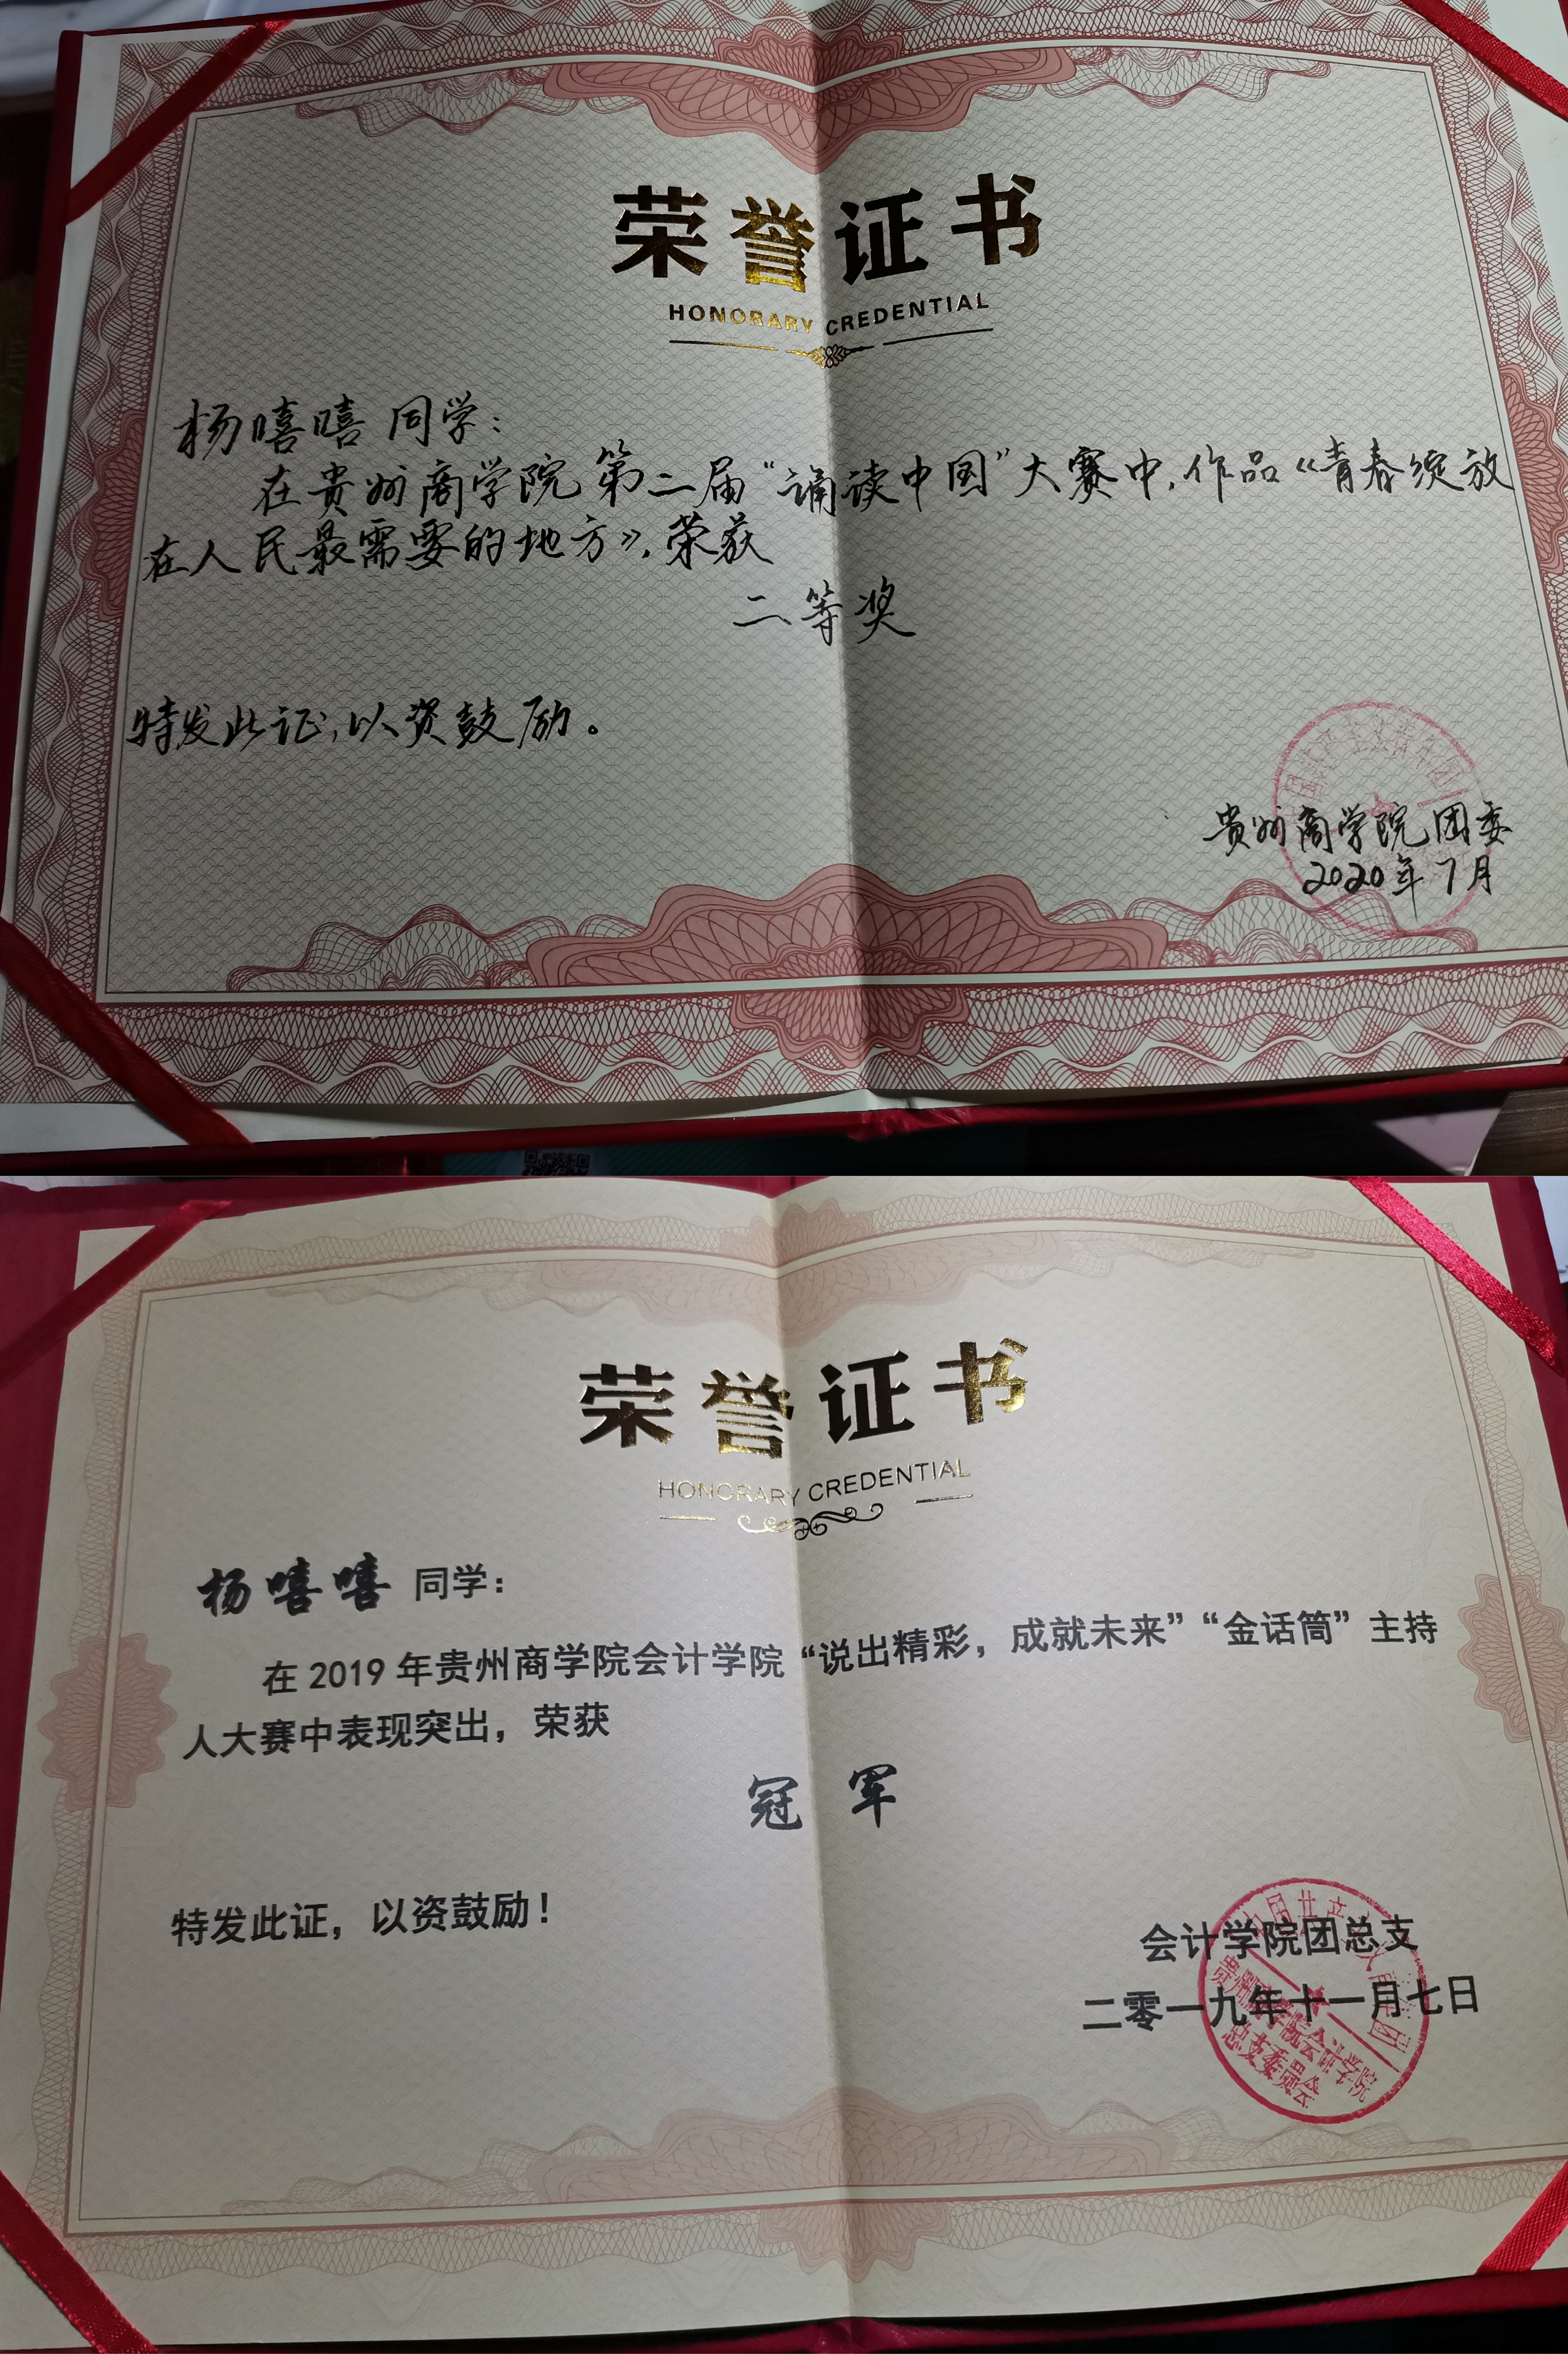 荣誉证书
HONORARY CREDENTIAL
杨嘻嘻 同学：
在贵州商学院第二届“诵读中国”大赛中，作品《青春绽放
在人民最需要的地方》，荣获
二等奖
特发此证，以资鼓励。
贵州商学院团委
2020年7月
荣誉证书
HONORARY CREDENTIAL
杨嘻嘻 同学：
在 2019 年贵州商学院会计学院“说出精彩，成就未来”“金话筒”主持
人大赛中表现突出，荣获
冠 军
特发此证，以资鼓励！
会计学院团总支
二零一九年十一月七日
贵州商学院会计学院
总支委员会